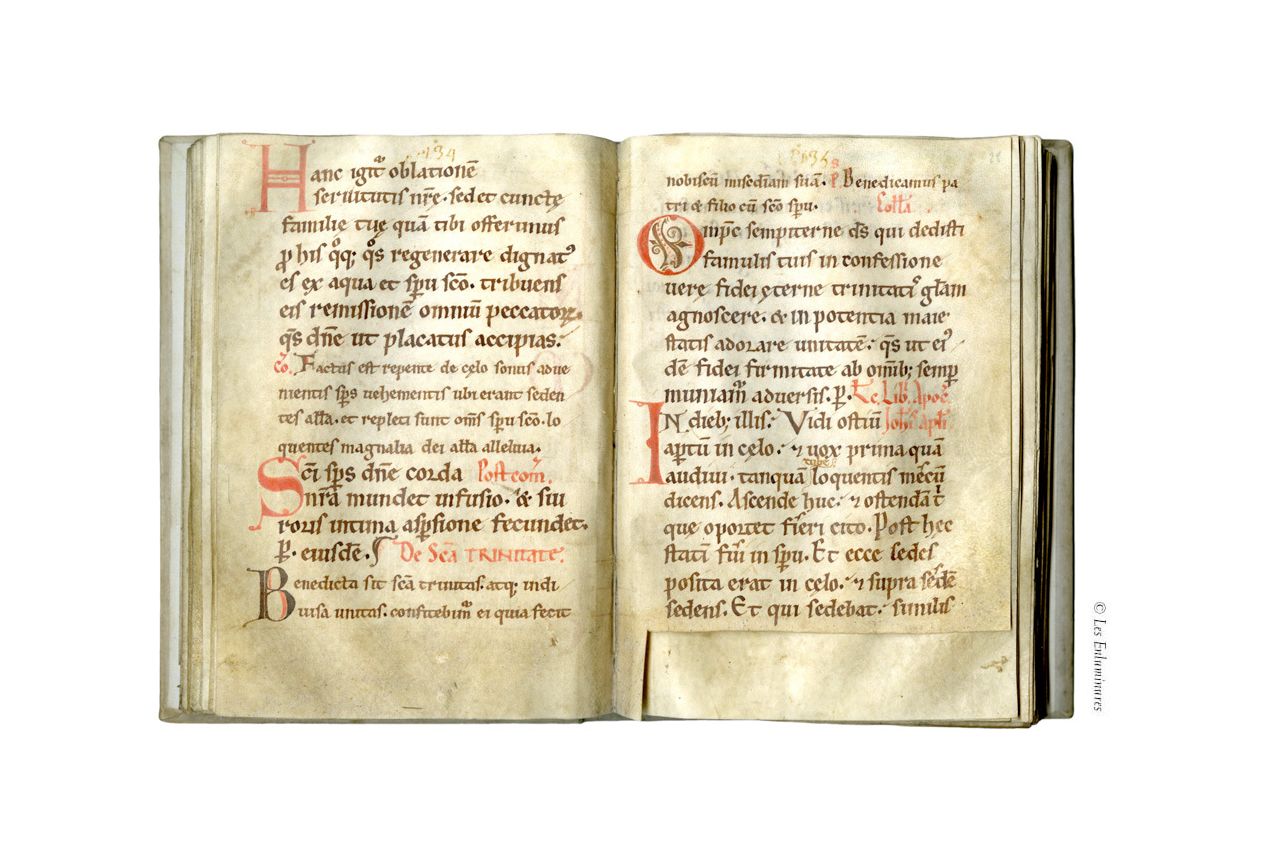 134
Hanc igit̄ oblationē
seruitutis nr̄e. sed et cunctę
familię tuę quā tibi offerimus
ꝓ his qͦq; qͦs regenerare dignatꝰ
es ex aqua et sp̄u sc̄o. tribuens
eis remissionē omniū peccatoꝝ.
qs̄ dn̄e ut placatus accipias.
Co. Factus est repente de cęlo sonus adue
nientis sp̄s uehementis ubi erant seden
tes all̄a. et repleti sunt om̄s sp̄u sc̄o. lo
quentes magnalia dei all̄a alleluia.
Sc̄i sp̄s dn̄e corda Postcom̄.
nr̄a mundet infusio. & sui
roris intima asp̄sione fecundet.
P. eiusdē. De Sc̄a TRINITATE.
Benedicta sit sc̄a trinitas. atq; indi
uisa unitas. confitebim̄ ei quia fecit
135
nobiscū misedīam suā. P. Benedicamus pa
tri & filio cū sc̄o sp̄u. Coll̄a
Omp̄s sempiterne ds̄ qui dedisti
famulis tuis in confessione
uerę fidei ęterne trinitatis gl̄am
agnoscere. & in potentia maie
statis adorare unitatē. qs̄ ut ei
dē fidei firmitate ab om̄ib; semp̄
muniam̄ adversis. P. Lc̄. Lib. Apoc̄.
IN dieb; illis. Vidi ostiū Joh̄is Apl̄i
ap̄tū in cęlo. & uox prima quā
tubę
audiui. tanquā loquentis mecū
dicens. Ascende huc. & ostendā t̄
que oportet fieri cito. Post hec
statī fui in sp̄u. Et ecce sedes
posita erat in cęlo. & supra sedē
sedens. Et qui sedebat. similis
© Les Enluminures